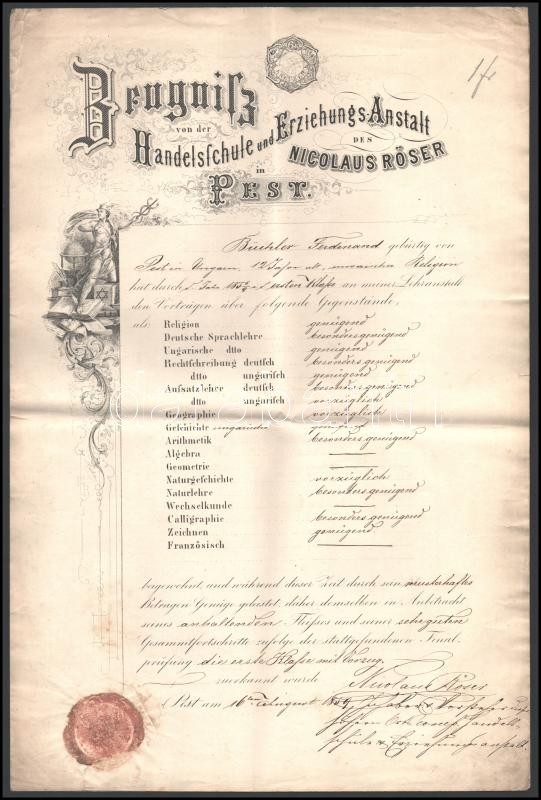 1fr
Zeugniſz
von der
Handelsſchule und Erziehungs-Anstalt
DES
NICOLAUS RÖSER
in
PEST.
Büchler Ferdinand gebürtig von
Pest in Ungarn, 12 Jahre alt, Religion
hat durch ersten Klaſse an meiner Lehranstalt
den Vorträgen über folgende Gegenstände,
als: Religion genügend
Deutsche Sprachlehre besonders genügend
Ungarische dtto genügend
Rechtſchreibung deutſch besonders genügend
dtto ungariſch genügend
Aufsatzlehre deutſch besonders genügend
dtto ungariſch vorzüglich
Geographie vorzüglich
Geſchichte ungarische genügend
Arithmetik besonders genügend
Algebra
Geometrie
Naturgeſchichte vorzüglich
Naturlehre besonders genügend
Wechselkunde
Calligraphie besonders genügend
Zeichnen genügend
Französisch
beygewohnt, und während dieser Zeit durch sein musterhaftes
Betragen Genüge geleistet, daher demselben in Anbetracht
seines anhaltenden Fleiſses und seiner sehr guten
Gesammtfortschritte zufolge der stattgefundenen Final-
prüfung die erste Klaſse mit Vorzug
zuerkannt wurde
Nicolaus Röser
Pest am 16ten August Inhaber & Vorsteher
Handels
schule & Erziehungsanstalt.